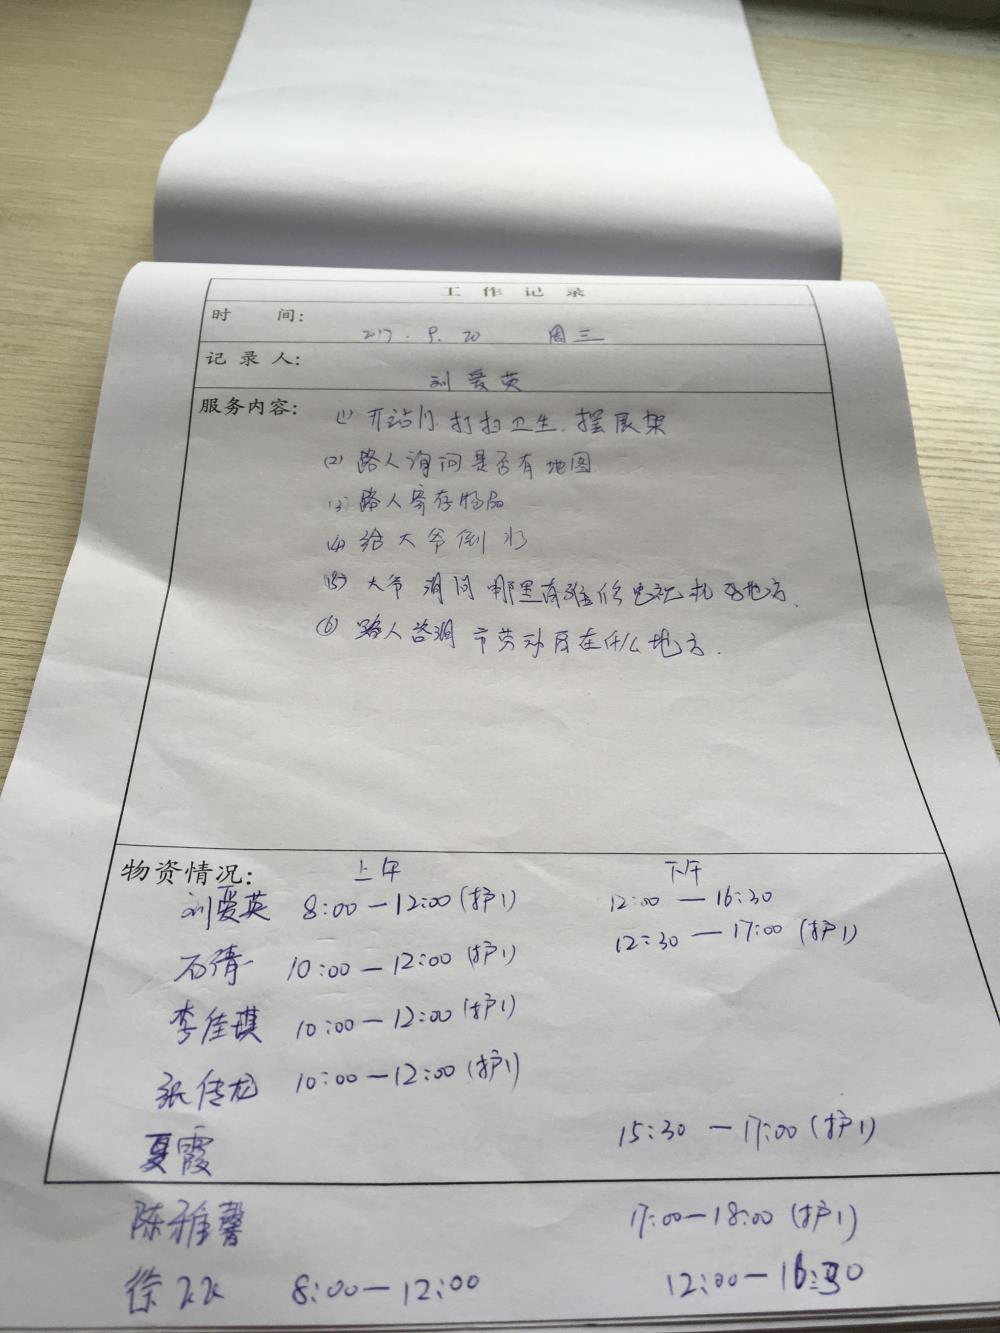 工作记录
时 间:
2017.9.20 周三
记录人:
刘爱英
服务内容:
(1) 开站门.打扫卫生.摆展架
(2) 路人询问是否有地图
(3) 路人寄存物品
(4) 给大爷倒水
(5) 大爷询问哪里有维修电视机的地方.
(6) 路人咨询市劳动局在什么地方.
物资情况: 上午 下午
刘爱英 8:00—12:00(护1) 12:00—16:30
石倩 10:00—12:00(护1) 12:30—17:00(护1)
李佳琪 10:00—12:00(护1)
张传龙 10:00—12:00(护1)
夏霞 15:30—17:00(护1)
陈雅馨 17:00—18:00(护1)
徐 8:00—12:00 12:00—16:30